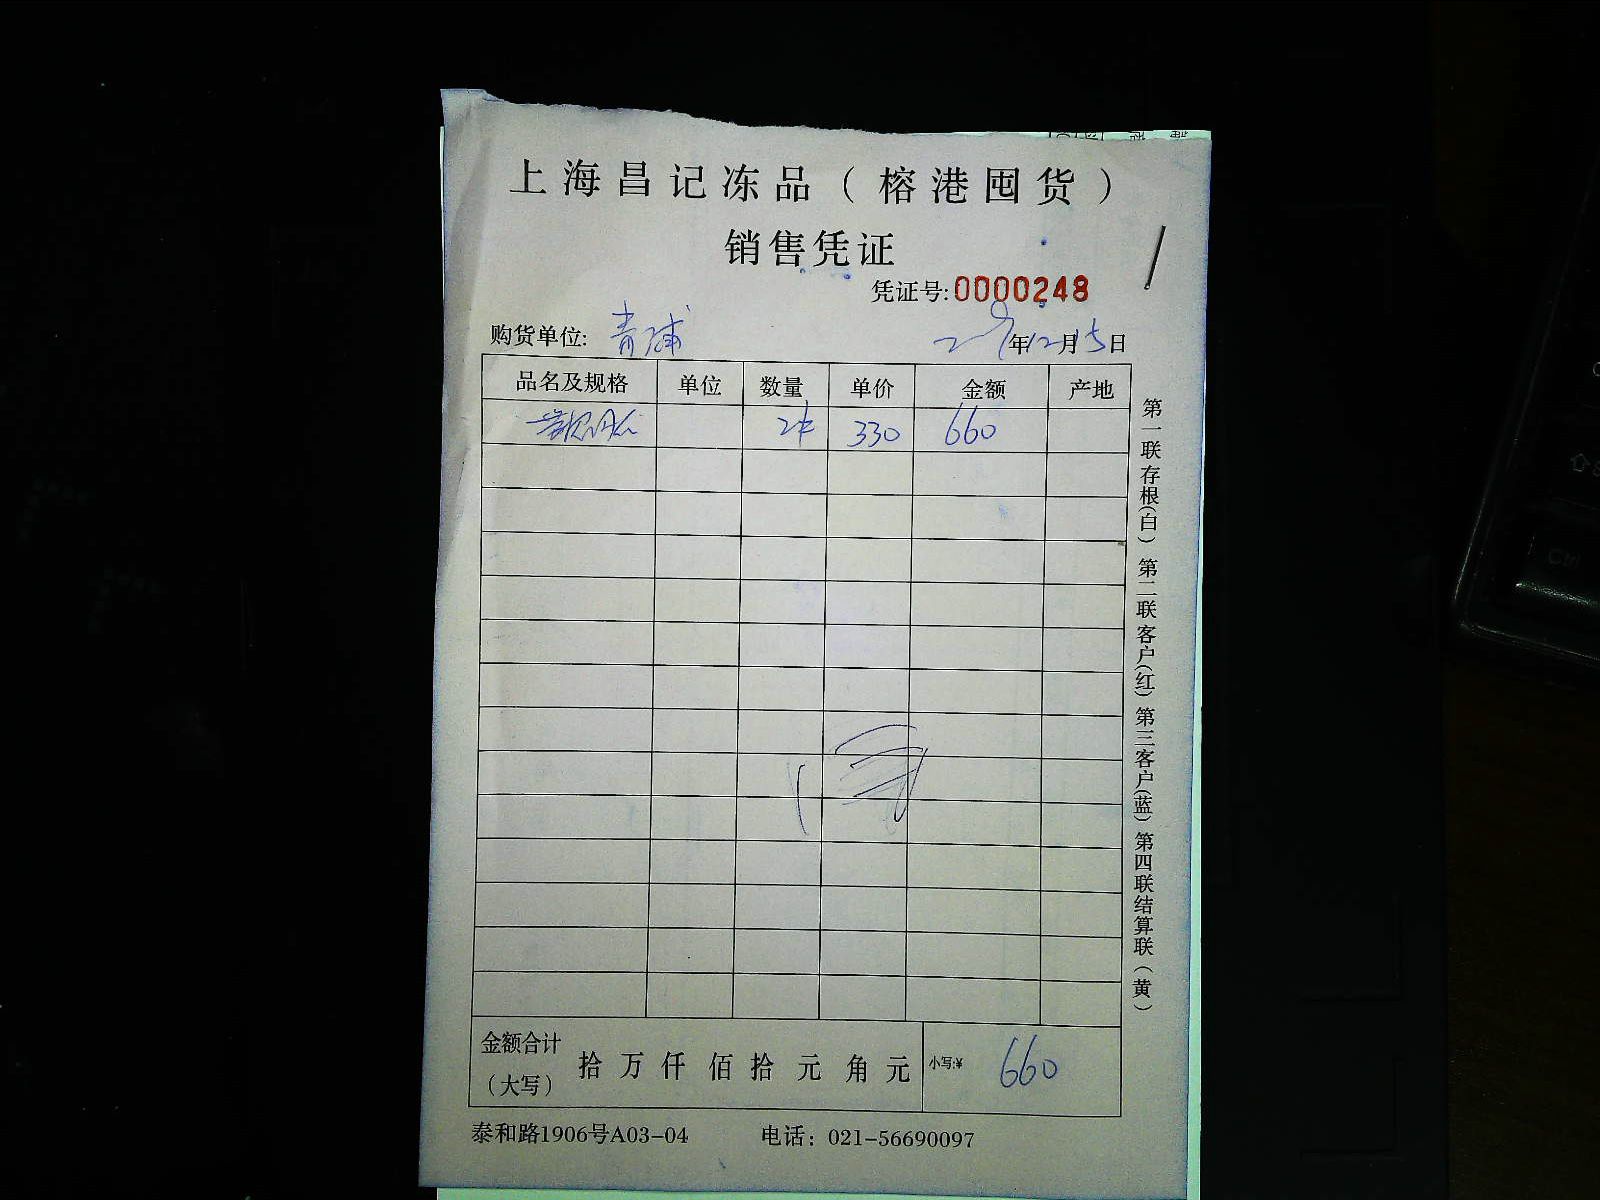 上海昌记冻品（榕港囤货）
销售凭证
凭证号:0000248
购货单位: 青浦
年12月15日
品名及规格 单位 数量 单价 金额 产地
2件 330 660
金额合计（大写） 拾 万 仟 佰 拾 元 角 元 小写:¥ 660
泰和路1906号A03-04 电话：021-56690097
第一联存根(白) 第二联客户(红) 第三客户(蓝) 第四联结算联(黄)